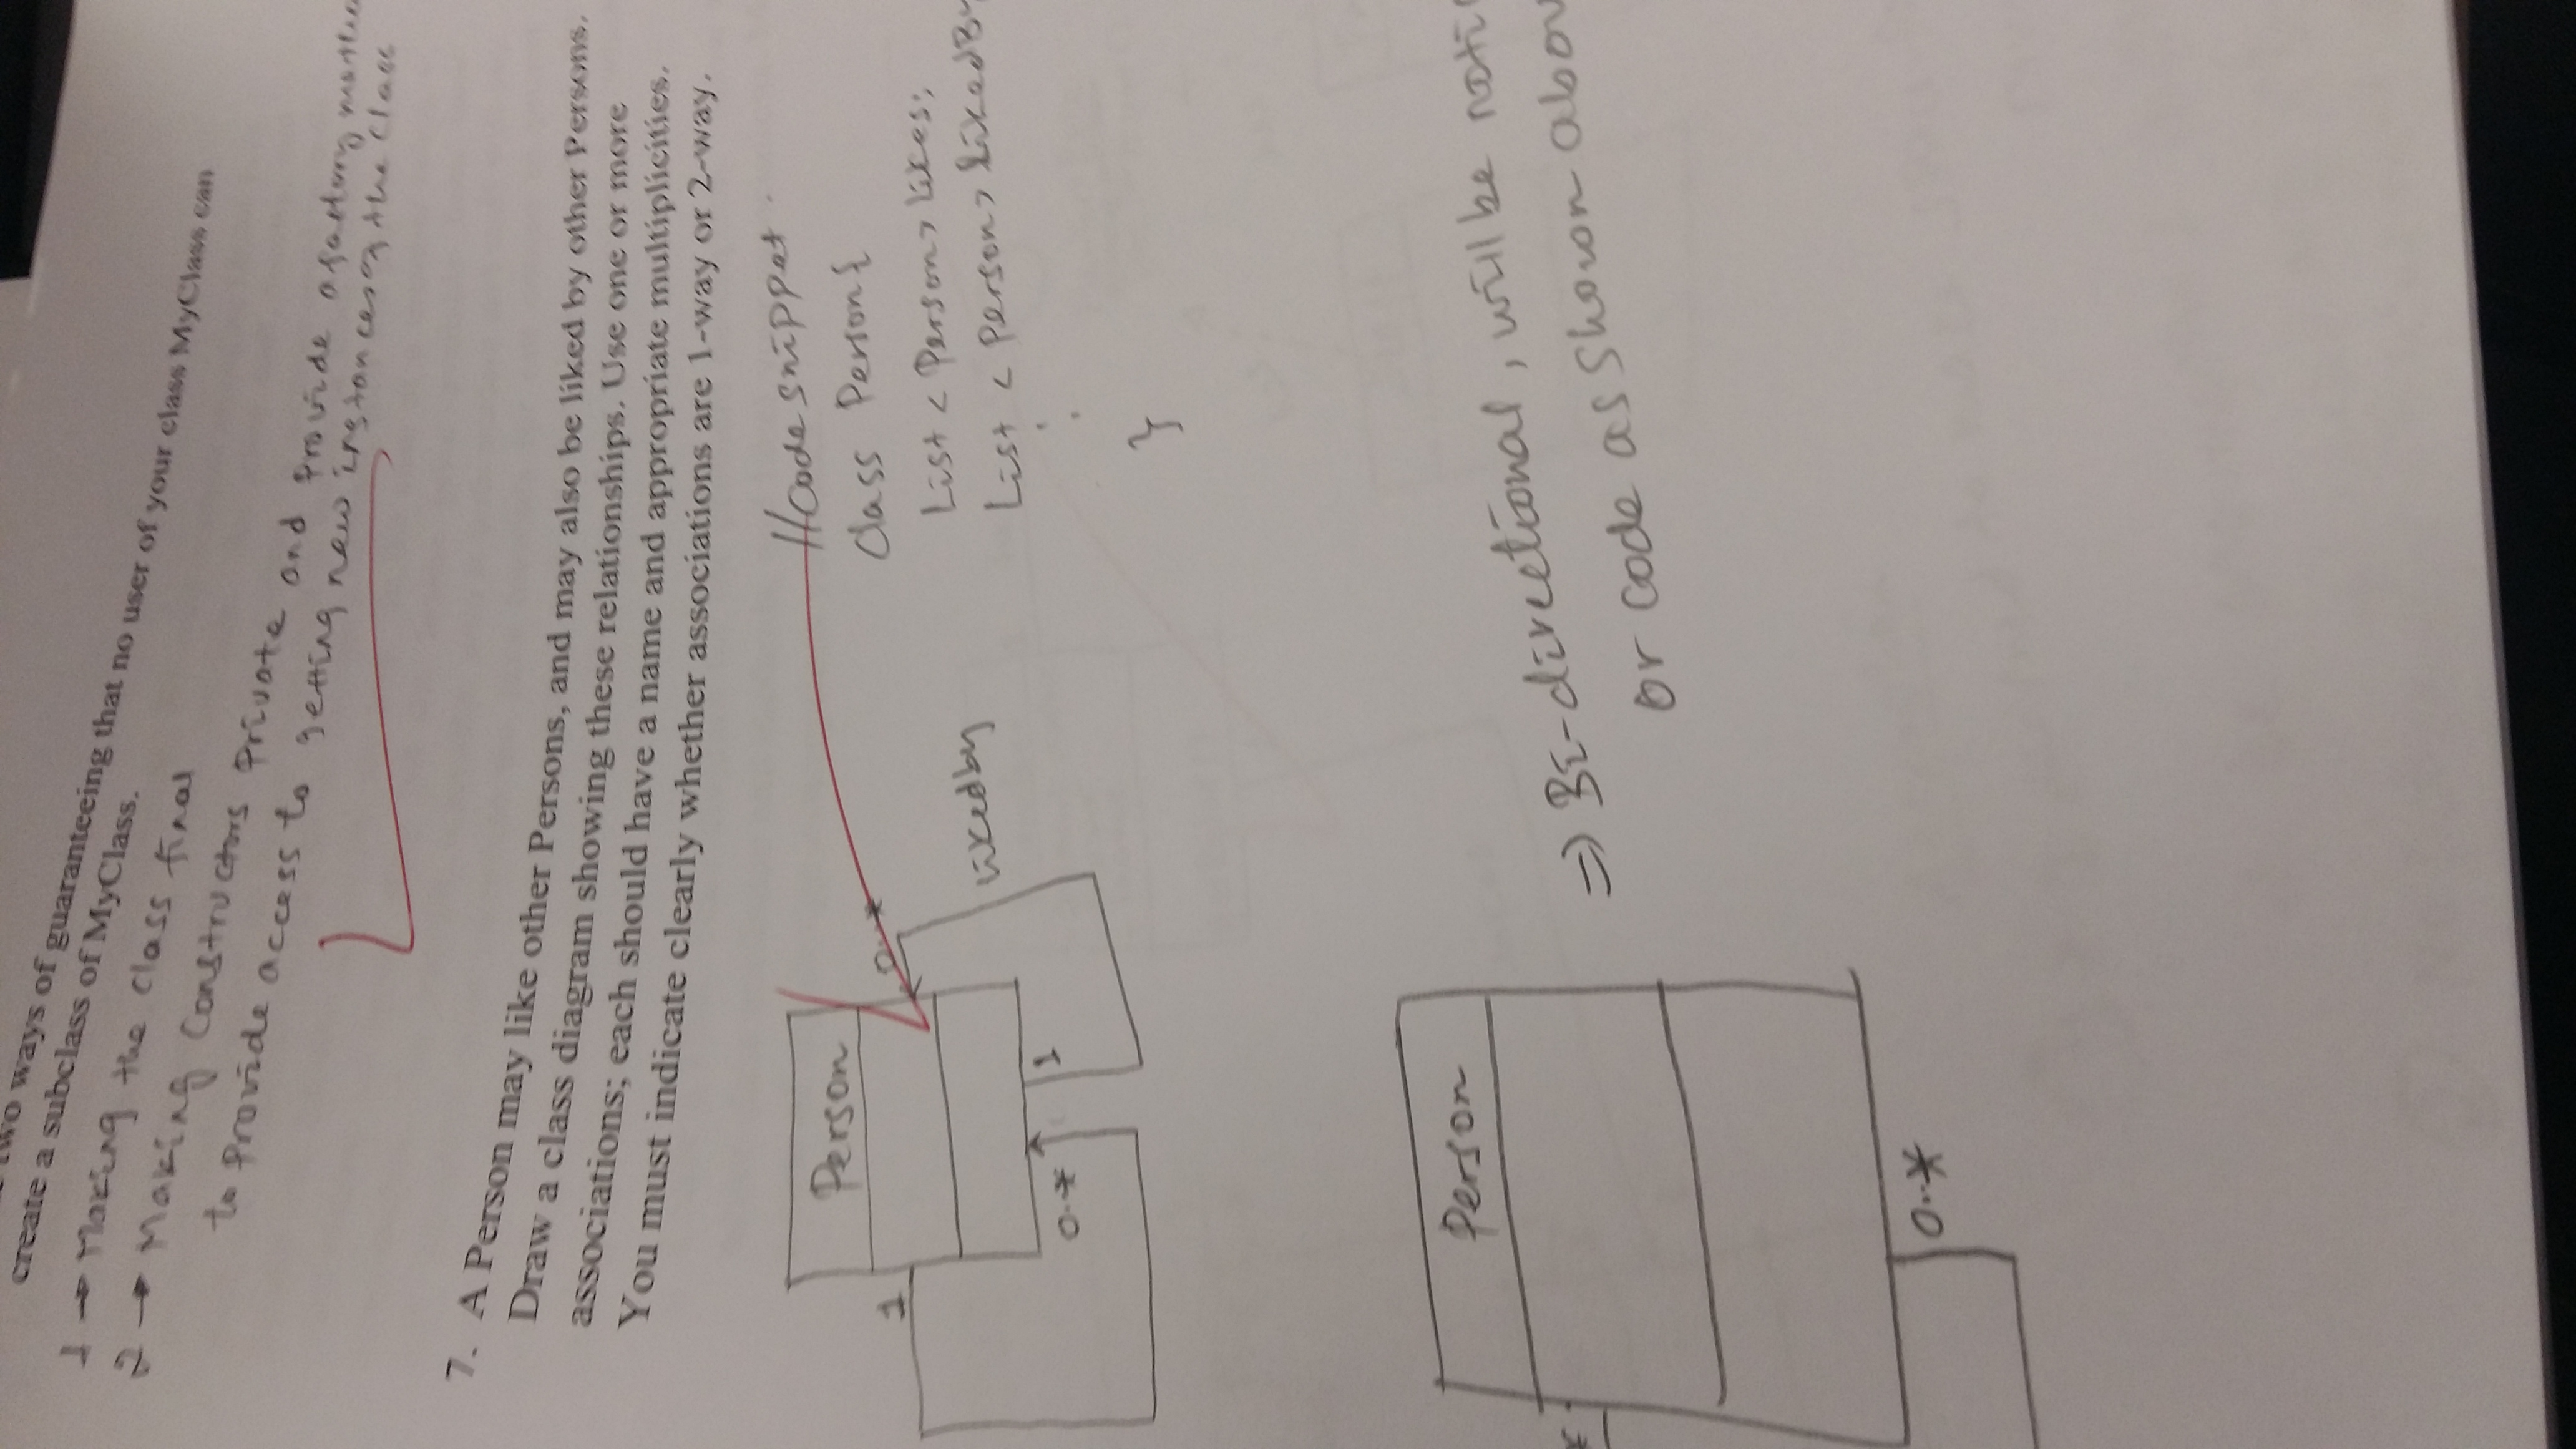 two ways of guaranteeing that no user of your class MyClass can
create a subclass of MyClass.
1 → Making the class final
2 → Making constructors private and provide a factory
to provide access to getting new instances of the class
7. A Person may like other Persons, and may also be liked by other Persons.
Draw a class diagram showing these relationships. Use one or more
associations; each should have a name and appropriate multiplicities.
You must indicate clearly whether associations are 1-way or 2-way.
//code snippet
Person
class Person{
1
0..*
List < Person> likes;
likedby
List < Person> likedBy
0..*
1
:
}
Person
⇒ Bi-directional, will be
or code as shown
*
0..*